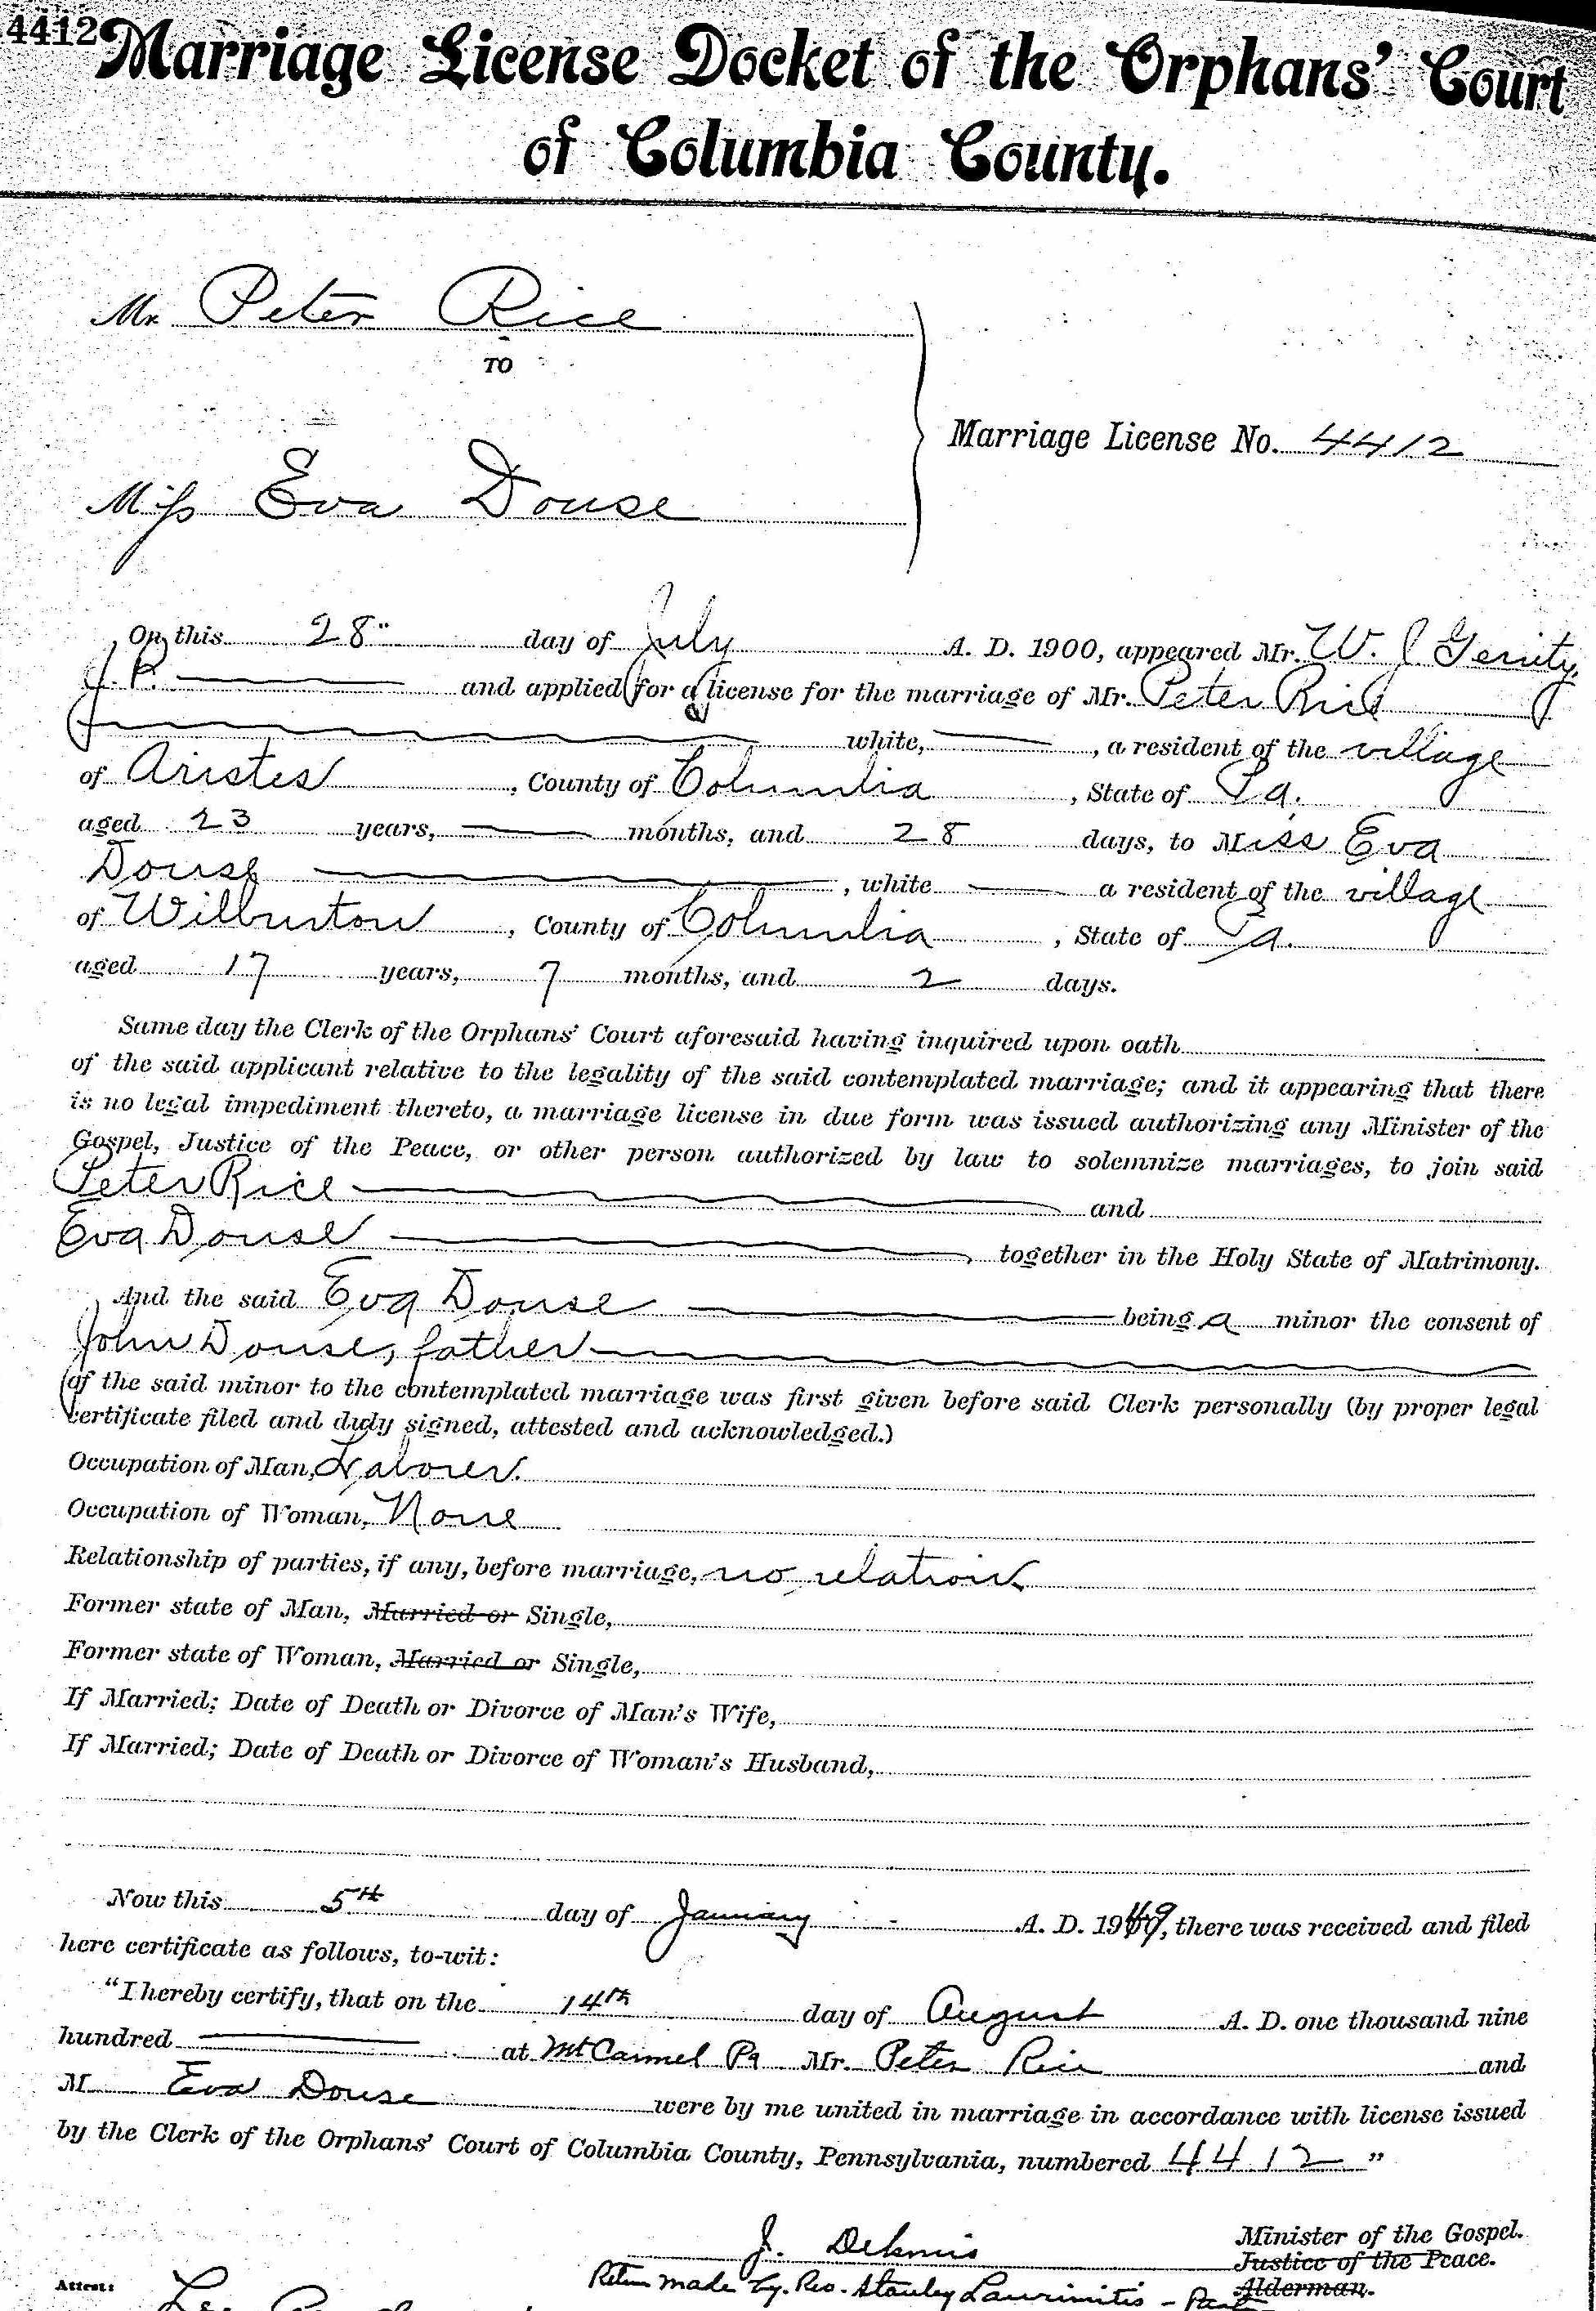 4412
Marriage License Docket of the Orphans' Court
of Columbia County.
Mr. Peter Rice
TO
Miss Eva Douse
Marriage License No. 4412
On this 28" day of July A. D. 1900, appeared Mr. W. J Gerrity,
J. P. and applied for a license for the marriage of Mr. Peter Rice
white, , a resident of the village
of Aristes , County of Columbia , State of Pa.
aged 23 years, months, and 28 days, to Miss Eva
Douse , white a resident of the village
of Wilburton , County of Columbia , State of Pa.
aged 17 years, 7 months, and 2 days.
Same day the Clerk of the Orphans' Court aforesaid having inquired upon oath
of the said applicant relative to the legality of the said contemplated marriage; and it appearing that there
is no legal impediment thereto, a marriage license in due form was issued authorizing any Minister of the
Gospel, Justice of the Peace, or other person authorized by law to solemnize marriages, to join said
Peter Rice and
Eva Douse together in the Holy State of Matrimony.
And the said Eva Douse being a minor the consent of
John Douse, father
of the said minor to the contemplated marriage was first given before said Clerk personally (by proper legal
certificate filed and duly signed, attested and acknowledged.)
Occupation of Man, Laborer.
Occupation of Woman, None
Relationship of parties, if any, before marriage, no relation.
Former state of Man, Married or Single,
Former state of Woman, Married or Single,
If Married; Date of Death or Divorce of Man's Wife,
If Married; Date of Death or Divorce of Woman's Husband,
Now this 5th day of January A. D. 1949, there was received and filed
here certificate as follows, to-wit:
"I hereby certify, that on the 14th day of August A. D. one thousand nine
hundred at Mt Carmel Pa Mr. Peter Rice and
M Eva Douse were by me united in marriage in accordance with license issued
by the Clerk of the Orphans' Court of Columbia County, Pennsylvania, numbered 4412 "
J. Minister of the Gospel.
Justice of the Peace.
Return made by. Rev. Stanley - Alderman.
Attest: